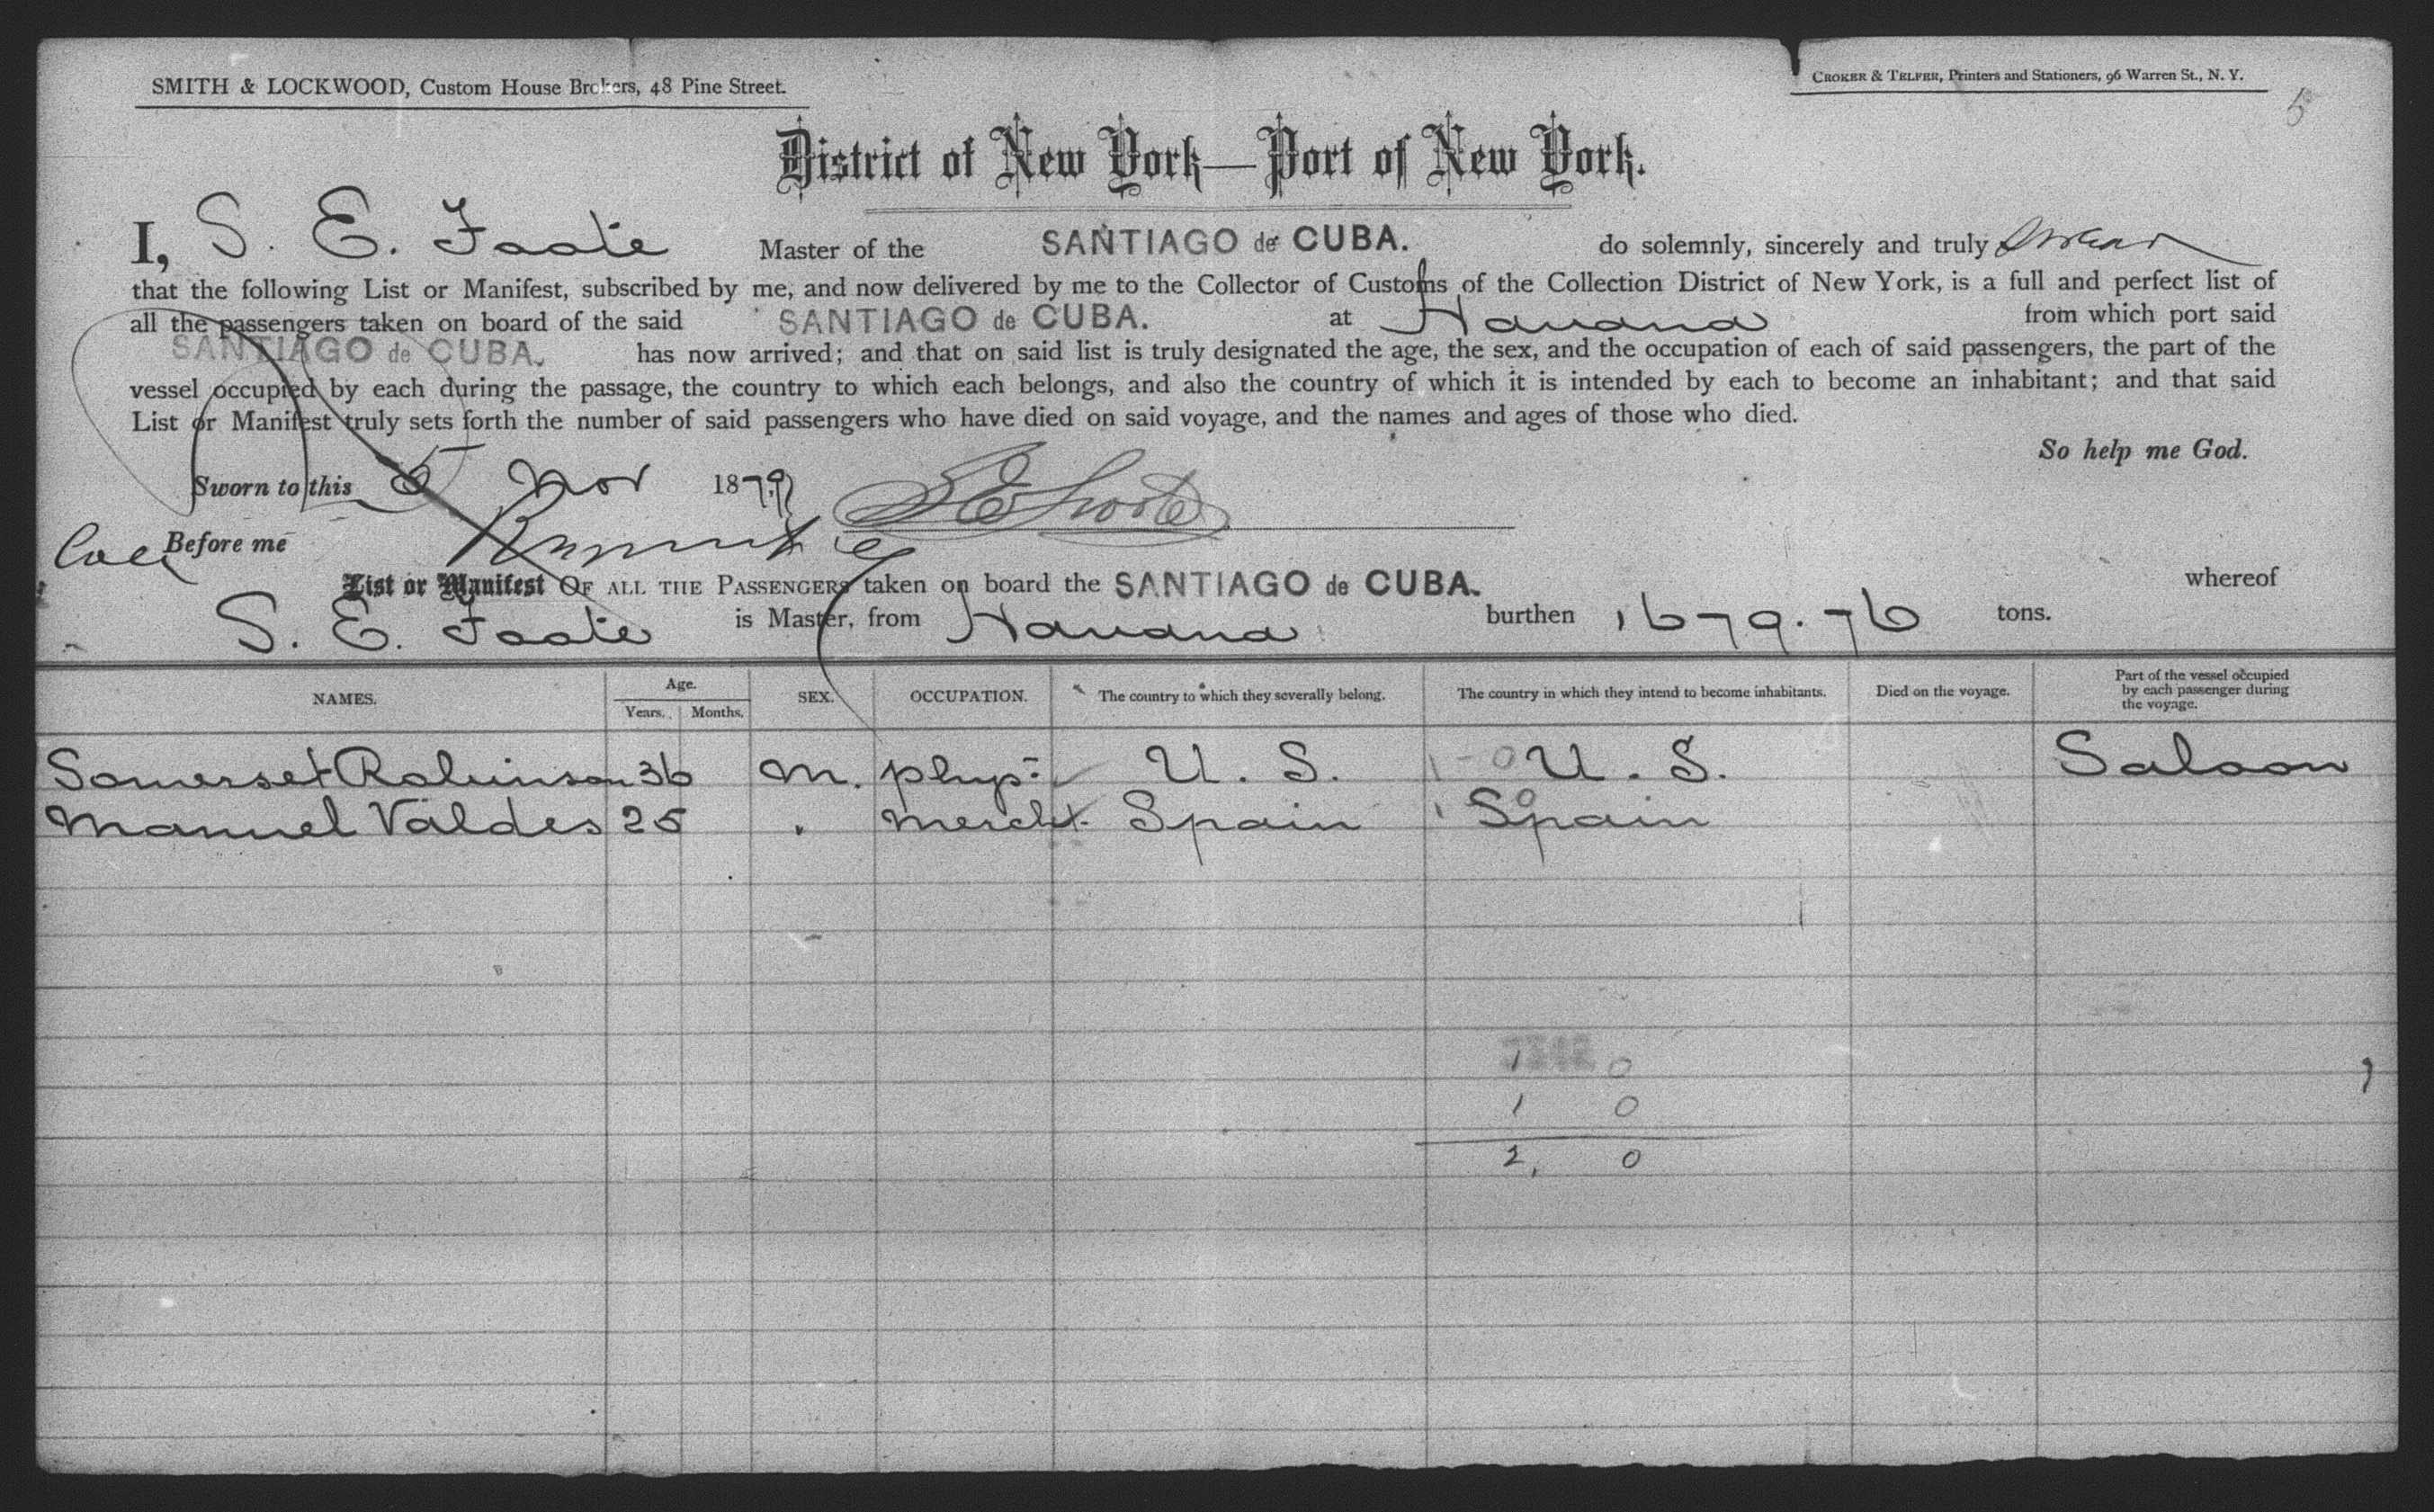 SMITH & LOCKWOOD, Custom House Brokers, 48 Pine Street.
CROKER & TELFER, Printers and Stationers, 96 Warren St., N. Y.
5
District of New York—Port of New York.
I, S. E. Foote Master of the SANTIAGO de CUBA. do solemnly, sincerely and truly swear
that the following List or Manifest, subscribed by me, and now delivered by me to the Collector of Customs of the Collection District of New York, is a full and perfect list of
all the passengers taken on board of the said SANTIAGO de CUBA. at Havana from which port said
SANTIAGO de CUBA. has now arrived; and that on said list is truly designated the age, the sex, and the occupation of each of said passengers, the part of the
vessel occupied by each during the passage, the country to which each belongs, and also the country of which it is intended by each to become an inhabitant; and that said
List or Manifest truly sets forth the number of said passengers who have died on said voyage, and the names and ages of those who died.
So help me God.
Sworn to this 5 Nov 1879 S E Foote
Before me
List or Manifest OF ALL THE PASSENGERS taken on board the SANTIAGO de CUBA. whereof
S. E. Foote is Master, from Havana burthen 1679.76 tons.
NAMES. Age. Years. Months. SEX. OCCUPATION. The country to which they severally belong. The country in which they intend to become inhabitants. Died on the voyage. Part of the vessel occupied by each passenger during the voyage.
Somerset Robinson 36 M. phys- U. S. 1-0 U. S. Saloon
Manuel Valdes 25 " mercht. Spain 1 0 Spain
1 0
1 0
2, 0